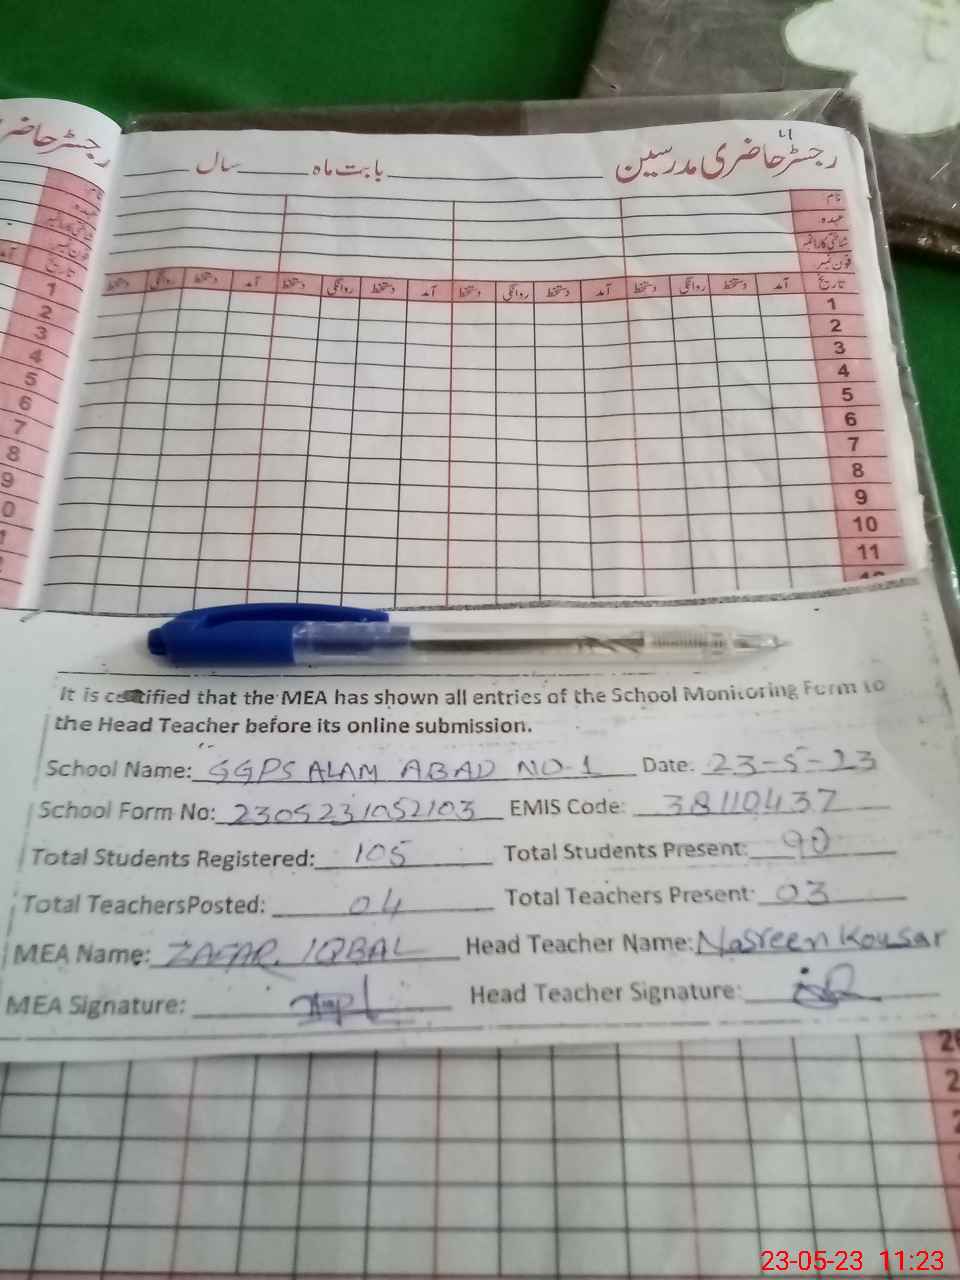 رجسٹر حاضری مدرسین بابت ماہ سال
نام
عہدہ
شناختی کارڈ نمبر
فون نمبر
تاریخ آمد دستخط روانگی دستخط آمد دستخط روانگی دستخط آمد دستخط روانگی دستخط آمد دستخط روانگی دستخط
1
2
3
4
5
6
7
8
9
10
11
رجسٹر حاضری
نام
عہدہ
شناختی کارڈ نمبر
فون نمبر
تاریخ آمد
1
2
3
4
5
6
7
8
9
It is certified that the MEA has shown all entries of the School Monitoring Form to
the Head Teacher before its online submission.
School Name: GGPS ALAM ABAD NO-1 Date: 23-5-23
School Form No: 2305231052103 EMIS Code: 38110437
Total Students Registered: 105 Total Students Present: 90
Total TeachersPosted: 04 Total Teachers Present: 03
MEA Name: ZAFAR IQBAL Head Teacher Name: Nasreen Kousar
MEA Signature: Head Teacher Signature:
23-05-23 11:23